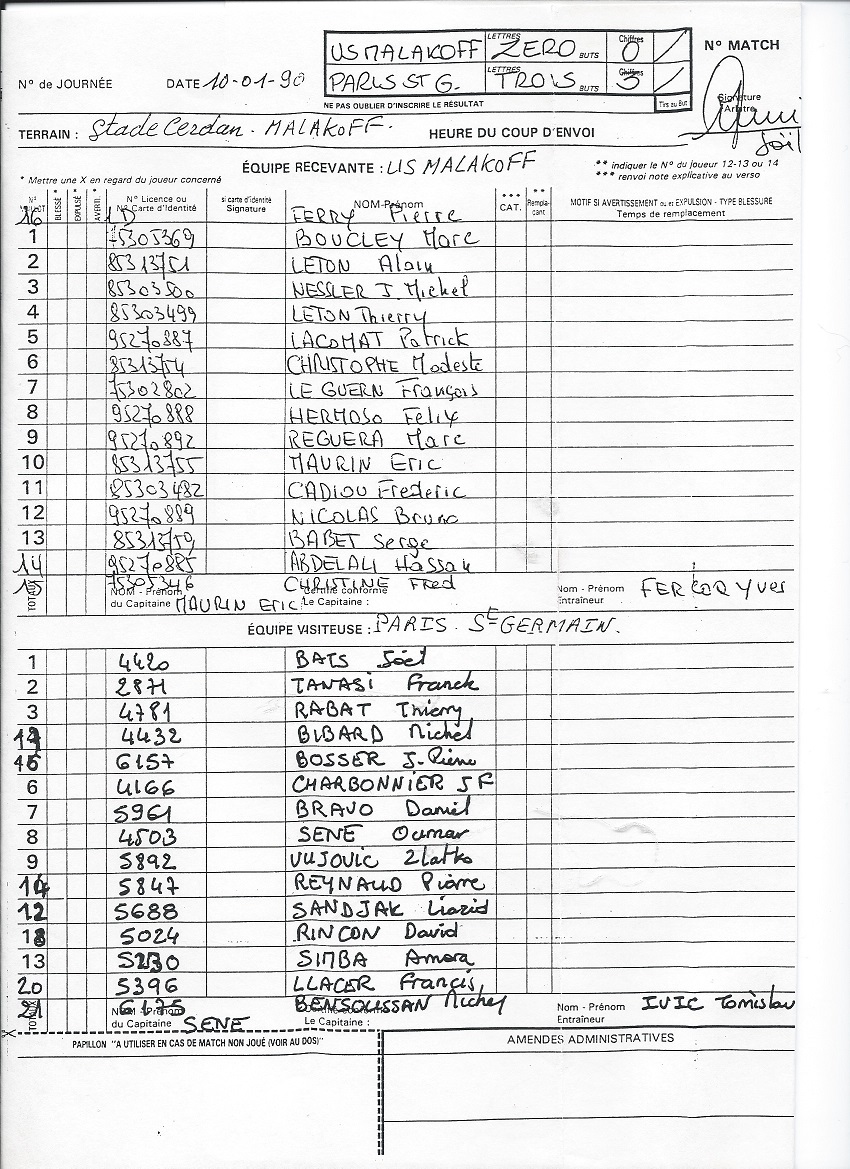 US MALAKOFF LETTRES ZERO BUTS Chiffres 0 /
PARIS ST G. LETTRES TROIS BUTS Chiffres 3 /
N° MATCH
N° de JOURNÉE DATE 10-01-90
NE PAS OUBLIER D'INSCRIRE LE RÉSULTAT Tirs au But
Signature Arbitre
Joël
TERRAIN : Stade Cerdan - MALAKOFF. HEURE DU COUP D'ENVOI
ÉQUIPE RECEVANTE : US MALAKOFF
** indiquer le N° du joueur 12-13 ou 14
* Mettre une X en regard du joueur concerné
*** renvoi note explicative au verso
BLESSÉ * EXPULSÉ * AVERTI. * N° Licence ou N° Carte d'Identité si carte d'identité Signature NOM-Prénom *** CAT. ** Rempla-çant MOTIF SI AVERTISSEMENT ou et EXPULSION - TYPE BLESSURE Temps de remplacement
16 FERRY Pierre
1 75305369 BOUCLEY Marc
2 85313751 LETON Alain
3 85303500 NESSLER J. Michel
4 85303499 LETON Thierry
5 95270887 LACOMAT Patrick
6 85313754 CHRISTOPHE Modeste
7 75302802 LE GUERN François
8 95270888 HERMOSO Felix
9 95270892 REGUERA Marc
10 85313755 MAURIN Eric
11 85303482 CADIOU Frederic
12 95270889 NICOLAS Bruno
13 85313759 BABET Serge
14 95270885 ABDELALI Hassan
15 75305346 CHRISTINE Fred
NOM - Prénom du Capitaine MAURIN Eric Certifié conforme Le Capitaine : Nom - Prénom Entraîneur Yves
ÉQUIPE VISITEUSE : PARIS - ST GERMAIN.
1 4420 BATS Joël
2 2871 TANASI Franck
3 4781 RABAT Thierry
4432 BIBARD Michel
6157 BOSSER J-Pierre
6 4166 CHARBONNIER JF
7 5961 BRAVO Daniel
8 4503 SENE Oumar
9 5892 VUJOVIC Zlatko
14 5847 REYNAUD Pierre
12 5688 SANDJAK Liazid
18 5024 RINCON David
13 SIMBA Amara
20 5396 LLACER Francis
21 6175 BENSOUSSAN Michel
NOM - Prénom du Capitaine SENE Le Capitaine : Nom - Prénom Entraîneur IVIC Tomislav
PAPILLON "A UTILISER EN CAS DE MATCH NON JOUÉ (VOIR AU DOS)"
AMENDES ADMINISTRATIVES